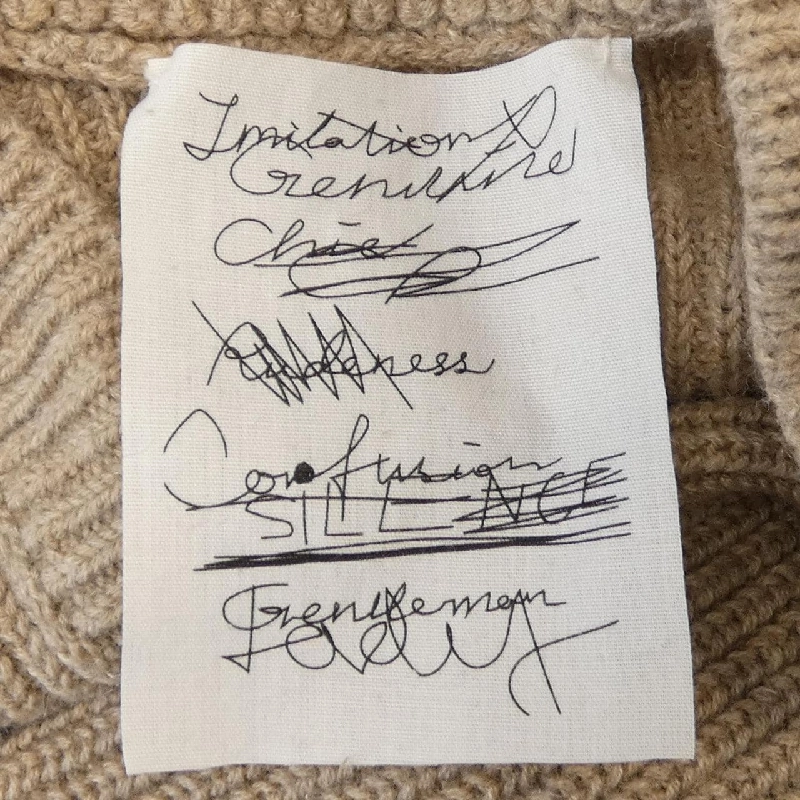 Imitation
Genuine
Chie
Rudeness
Confusion
SILLENCE
Gentleman